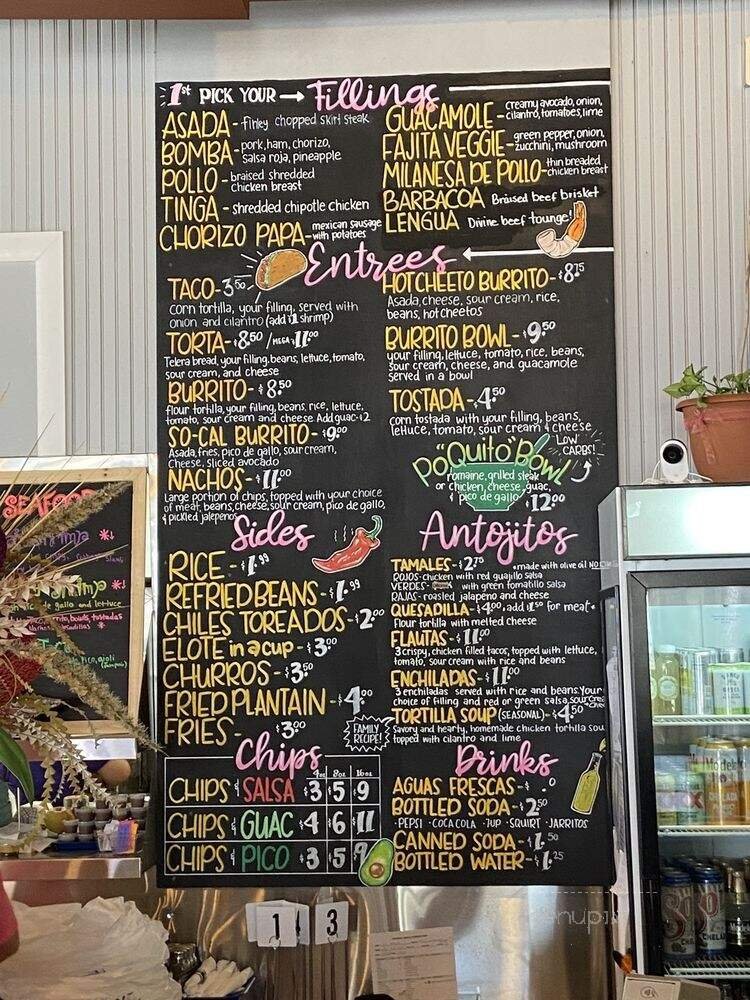 1st PICK YOUR → Fillings
ASADA - finley chopped skirt steak
BOMBA - pork, ham, chorizo,
salsa roja, pineapple
POLLO - braised shredded
chicken breast
TINGA - shredded chipotle chicken
CHORIZO PAPA - mexican sausage
with potatoes
GUACAMOLE - creamy avocado, onion,
cilantro, tomatoes, lime
FAJITA VEGGIE - green pepper, onion,
zucchini, mushroom
MILANESA DE POLLO - thin breaded
chicken breast
BARBACOA Braised beef brisket
LENGUA Divine beef tounge!
Entrees
TACO - 3.50
corn tortilla, your filling, served with
onion and cilantro (add $1 shrimp)
TORTA - $8.50 / MEGA $11.00
Telera bread, your filling, beans, lettuce, tomato,
sour cream, and cheese
BURRITO - $8.50
flour tortilla, your filling, beans, rice, lettuce,
tomato, sour cream and cheese Add guac $2
SO-CAL BURRITO - $9.00
Asada, fries, pico de gallo, sour cream,
cheese, sliced avocado
NACHOS - $11.00
Large portion of chips, topped with your choice
of meat, beans, cheese, sour cream, pico de gallo,
& pickled jalepenos
HOT CHEETO BURRITO - $8.75
Asada, cheese, sour cream, rice,
beans, hot cheetos
BURRITO BOWL - $9.50
your filling, lettuce, tomato, rice, beans,
sour cream, cheese, and guacamole
served in a bowl
TOSTADA - $4.50
corn tostada with your filling, beans,
lettuce, tomato, sour cream & cheese
"PoQuito" Bowl
LOW
CARBS!
romaine, grilled steak
or chicken, cheese, guac,
& pico de gallo $12.00
Sides
RICE - $1.99
REFRIED BEANS - $1.99
CHILES TOREADOS - $2.00
ELOTE in a cup - $3.00
CHURROS - $3.50
FRIED PLANTAIN - $4.00
FRIES - $3.00
FAMILY
RECIPE!
Antojitos
TAMALES - $2.75 *made with olive oil NO
ROJOS - chicken with red guajillo salsa
VERDES - with green tomatillo salsa
RAJAS - roasted jalapeno and cheese
QUESADILLA - $4.00, add $1.50 for meat*
Flour tortilla with melted cheese
FLAUTAS - $11.00
3 crispy, chicken filled tacos, topped with lettuce,
tomato, sour cream with rice and beans
ENCHILADAS - $11.00
3 enchiladas served with rice and beans. Your
choice of filling and red or green salsa, sour cre
TORTILLA SOUP (SEASONAL) - $4.50
Savory and hearty, homemade chicken tortilla sou
topped with cilantro and lime
Chips
4oz 8oz 16oz
CHIPS & SALSA $3 $5 $9
CHIPS & GUAC $4 $6 $11
CHIPS & PICO $3 $5 $9
Drinks
AGUAS FRESCAS - $
BOTTLED SODA - $2.50
·PEPSI ·COCA COLA ·7UP ·SQUIRT ·JARRITOS
CANNED SODA - $1.50
BOTTLED WATER - $1.25
SEAFOOD
de gallo and lettuce
1 3
Modelo